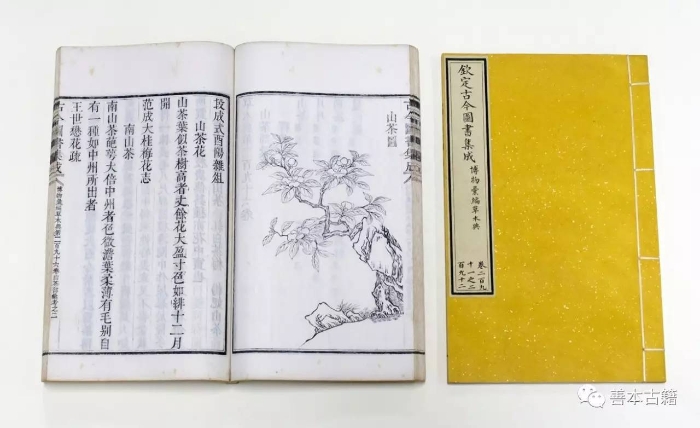 山茶圖
段成式酉陽雜俎
山茶花
山茶葉似茶樹高者丈餘花大盈寸色如緋十二月
開
范成大桂海花志
南山茶
南山茶葩萼大倍中州者色微澹葉柔薄有毛别自
有一種如中州所出者
王世懋花疏
古今圖書集成
博物彙編草木典第二百九十
欽定古今圖書集成
博物彙編草木典
卷二百九
十一之二
百九十二
善本古籍